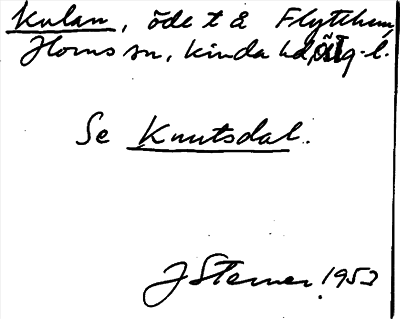 Kulan, öde t å Flyttehem,
Horns sn, Kinda hd, Ög. l.
Se Knutsdal.
J Sterner. 1953